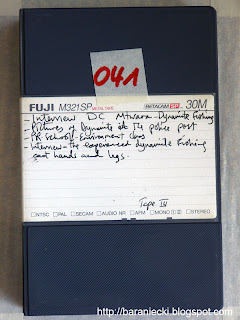 041
FUJI M321SP METAL TAPE BETACAM SP 30M
- Interview DC Mtwara - Dynamite Fishing
- Pictures of Dynamite etc The police post
- PR School - Environment class
- Interview - the experienced dynamite fishing
cant hands and legs.
Tape IV
NTSC PAL SECAM AUDIO NR AFM MONO 1 2 STEREO
http://baraniecki.blogspot.com